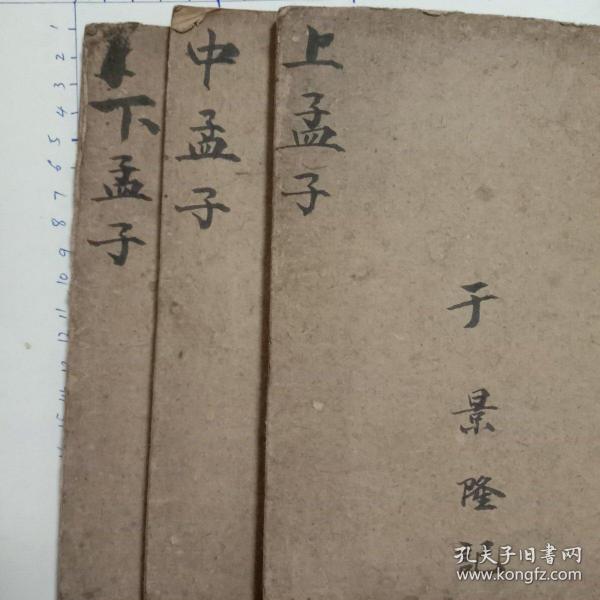 上孟子
于景隆記
中孟子
下孟子
1
2
3
4
5
6
7
8
9
10
11
12
13
孔夫子旧書网
www.kongfz.com